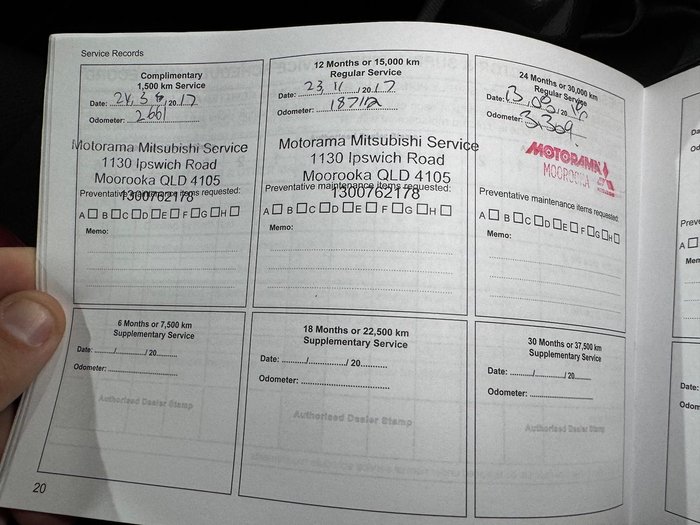 Service Records
Complimentary
1,500 km Service
Date: /20 17
Odometer: 2661
Motorama Mitsubishi Service
1130 Ipswich Road
Moorooka QLD 4105
1300762178
Preventative maintenance items requested:
A B C D E F G H
Memo:
12 Months or 15,000 km
Regular Service
Date: 23/11/2017
Odometer: 18712
Motorama Mitsubishi Service
1130 Ipswich Road
Moorooka QLD 4105
1300762178
Preventative maintenance items requested:
A B C D E F G H
Memo:
24 Months or 30,000 km
Regular Service
Date: 13/ /20
Odometer:
MOTORAMA
MOOROOKA
Preventative maintenance items requested:
A B C D E F G H
Memo:
6 Months or 7,500 km
Supplementary Service
Date: ......../......../20........
Odometer: ........................
Authorised Dealer Stamp
18 Months or 22,500 km
Supplementary Service
Date: ......../......../20........
Odometer: ........................
Authorised Dealer Stamp
30 Months or 37,500 km
Supplementary Service
Date: ......../......../20........
Odometer: ........................
Authorised Dealer Stamp
20
Date: